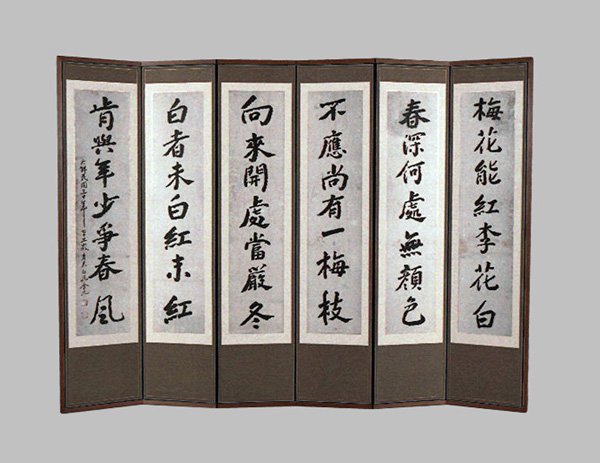 梅花能紅李花白
春深何處無顔色
不應尚有一梅枝
向來開處當嚴冬
白者未白紅未紅
肯與年少爭春風
大韓民國三十年